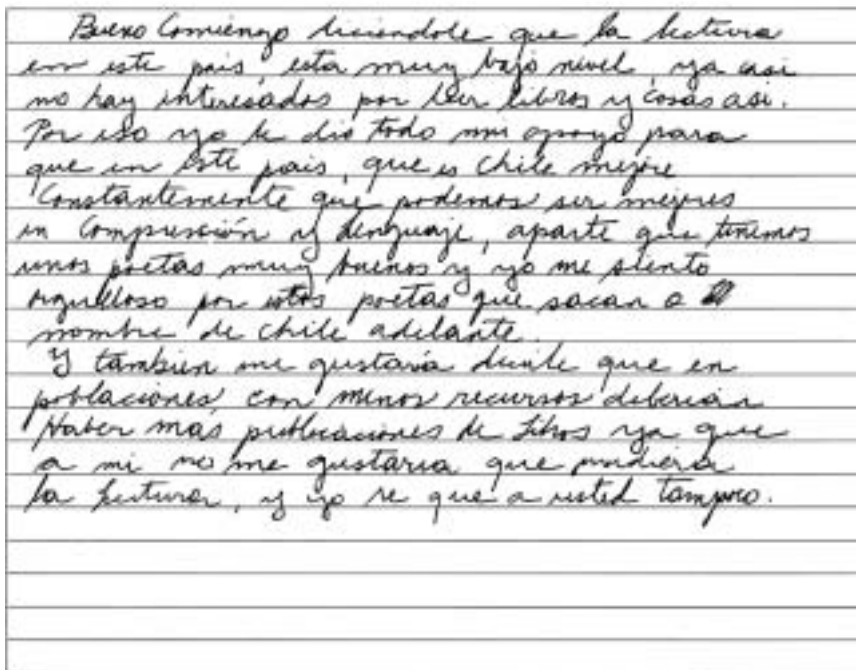 Bueno Comienzo diciendole que la lectura
en este pais, esta muy bajo nivel, ya casi
no hay interesados por leer libros y cosas asi.
Por eso yo le dio todo mi apoyo para
que en este pais, que es Chile mejore
Constantemente que podemos ser mejores
en Comprensión y lenguaje, aparte que tenemos
unos poetas muy buenos y yo me siento
orgulloso por estos poetas que sacan a
nombre de chile adelante.
Y tambien me gustaría decirle que en
poblaciones con menos recursos deberian
Haber mas publicaciones de Libros ya que
a mi no me gustaria que
la lectura, y yo se que a usted tampoco.